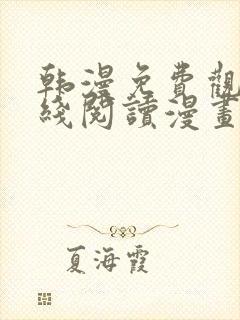 韩漫免費觀
綫閱讀漫畫
夏海霞